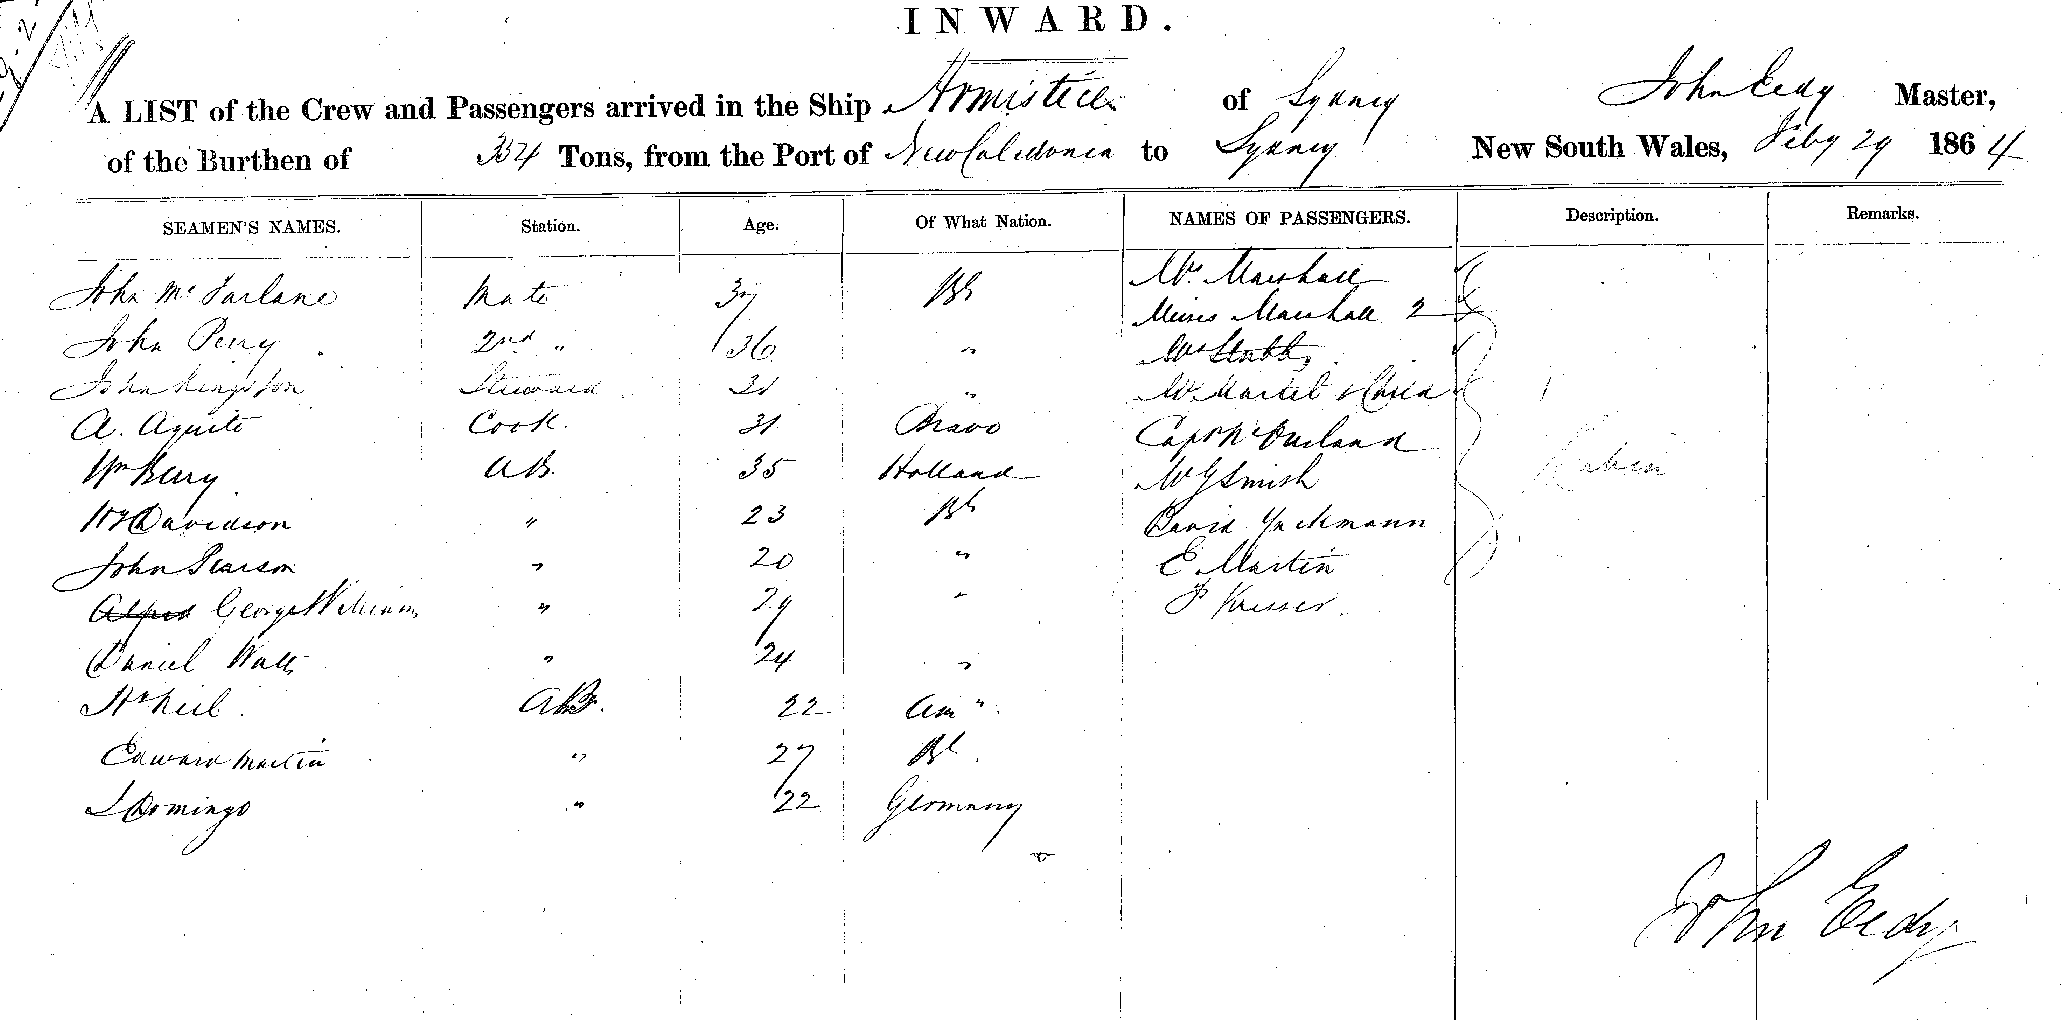 INWARD.
A LIST of the Crew and Passengers arrived in the Ship Armistice of Sydney John Eedy Master,
of the Burthen of 334 Tons, from the Port of New Caledonia to Sydney New South Wales, Feby 29 1864
SEAMEN'S NAMES. Station. Age. Of What Nation. NAMES OF PASSENGERS. Description. Remarks.
John Mc Farlane Mate 37 Bh Mr. Marshall
John Perry 2nd " 36 " Misses Marshall 2
John Kingston Steward 21 " Mr Stubbs
A. Aquito Cook. 31 Bravo Mr Martel & Child
Wm Berry AB. 35 Holland Capt Mc Farland Cabin
Davidson " 23 Bh W G Smith
John Pearson " 20 " David
Alfred George Williams " 29 " E. Martin
Daniel Watts " 24 " P Kresser.
AB. 22 Am "
Edward Martin " 27 Bh
L Domingo " 22 Germany
John Eedy